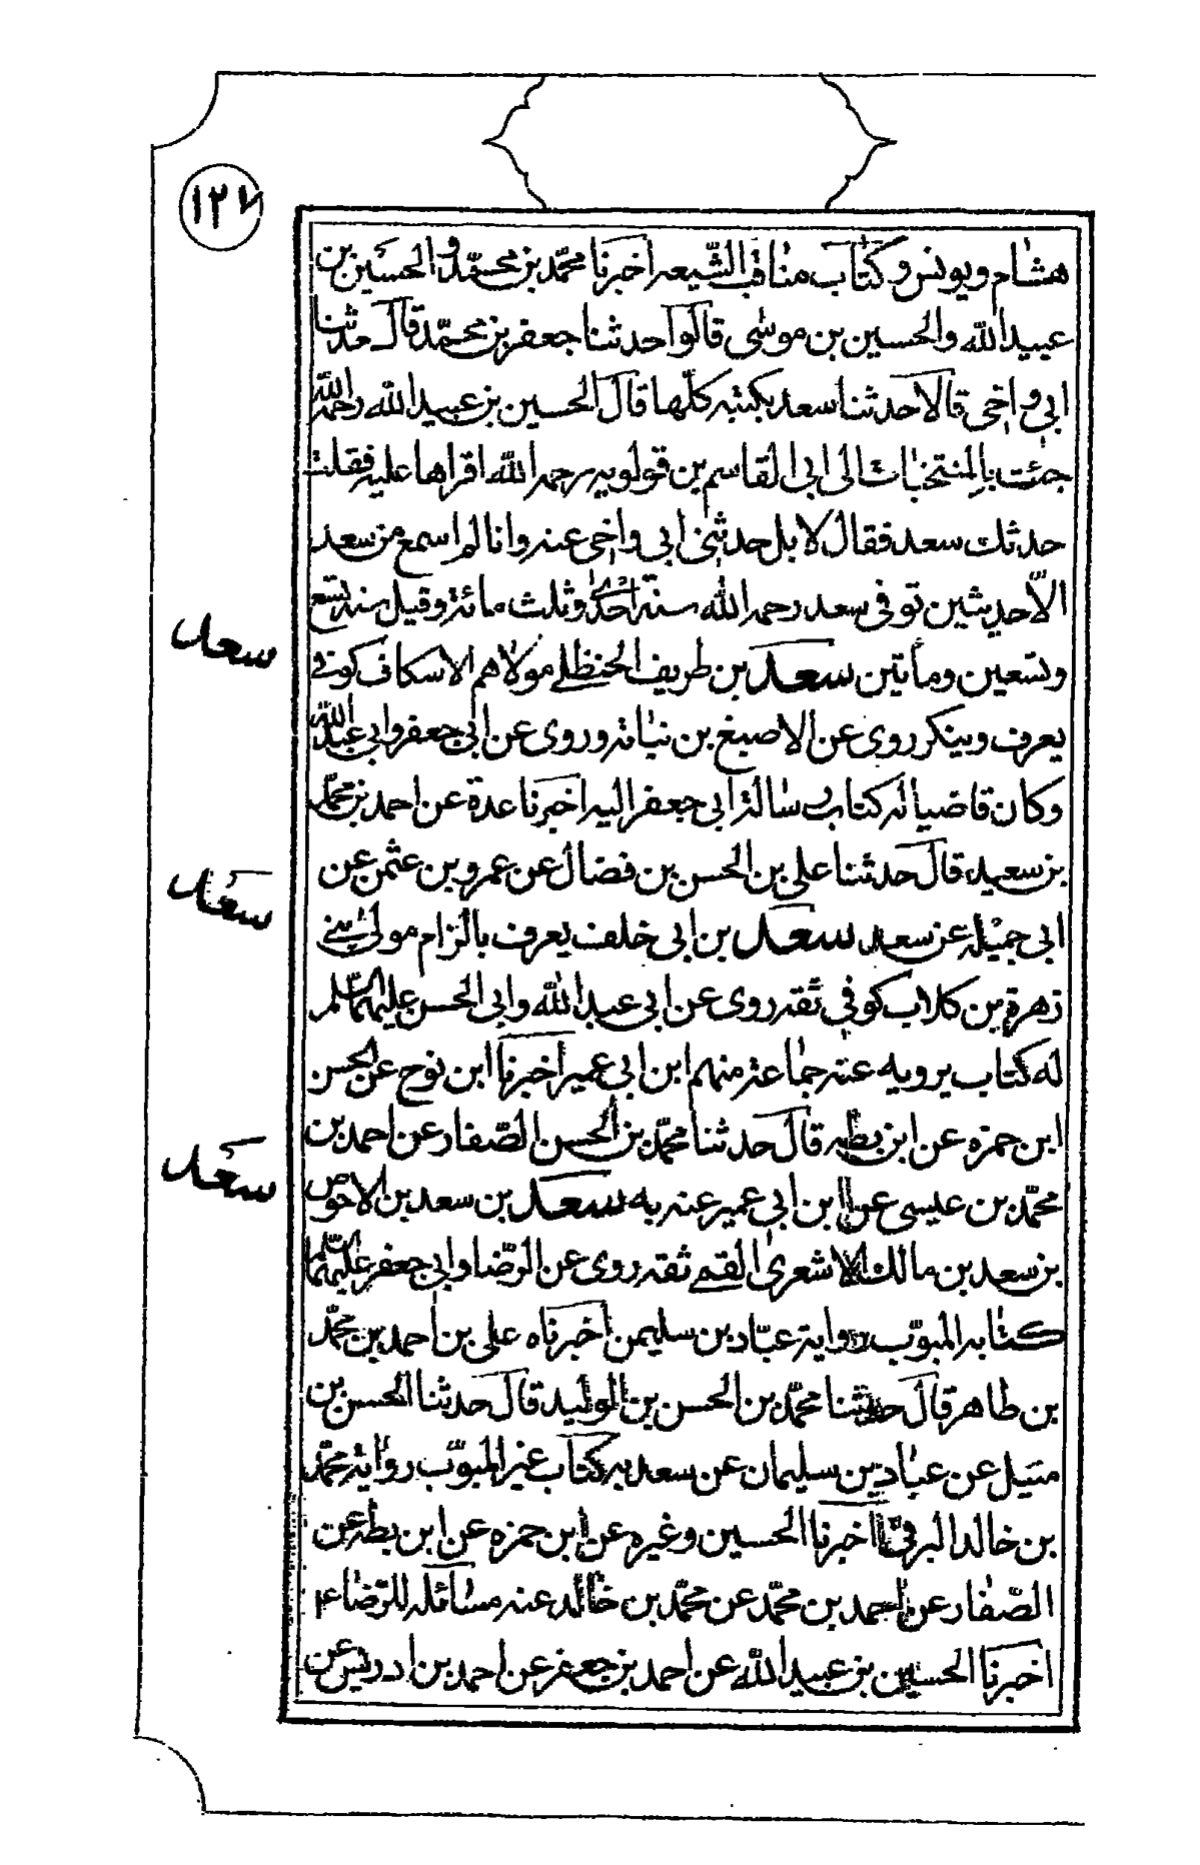 ١٢٧
هشام ويونس وكتاب مناقب الشيعه اخبرنا محمد بن محمد والحسين بن
عبيدالله والحسين بن موسى قالوا حدثنا جعفر بن محمد قال حدثنا
ابي واخي قالا حدثنا سعد بكتبه كلها قال الحسين بن عبيدالله رحمه الله
جئت بالمنتخبات الى ابى القاسم بن قولويه رحمه الله اقراها عليه فقلت
حدثك سعد فقال لا بل حدثني ابى واخى عنه وانا لم اسمع من سعد
الا حديثين توفى سعد رحمه الله سنة احدى وثلث مائة وقيل سنة تسع
وتسعين ومأتين سعد بن طريف الحنظلى مولاهم الاسكاف كوفى
يعرف وينكر روى عن الاصبغ بن نباتة وروى عن ابى جعفر وابى عبدالله
وكان قاضيا له كتاب رسالة ابى جعفر اليه اخبرنا عدة عن احمد بن محمد
بن سعيد قال حدثنا على بن الحسن بن فضال عن عمرو بن عثمن عن
ابى جميله عن سعد سعد بن ابى خلف يعرف بالزام مولى بنى
زهرة بن كلاب كوفى ثقه روى عن ابى عبدالله وابى الحسن عليهما السلم
له كتاب يرويه عنه جماعة منهم ابن ابى عمير اخبرنا ابن نوح عن الحسن
ابن حمزه عن ابن بطه قال حدثنا محمد بن الحسن الصفار عن احمد بن
محمد بن عيسى عن ابن ابى عمير عنه به سعد بن سعد بن الاحوص
بن سعد بن مالك الاشعرى القمى ثقه روى عن الرضا وابى جعفر عليهما
كتابه المبوب رواية عباد بن سليمن اخبرناه على بن احمد بن محمد
بن طاهر قال حدثنا محمد بن الحسن بن الوليد قال حدثنا الحسن بن
متيل عن عباد بن سليمان عن سعد به كتاب غير المبوب رواية محمد
بن خالد البرقى اخبرنا الحسين وغيره عن ابن حمزه عن ابن بطه عن
الصفار عن احمد بن محمد عن محمد بن خالد عنه مسائله للرضا ع
اخبرنا الحسين بن عبيدالله عن احمد بن جعفر عن احمد بن ادريس عن
سعد
سعد
سعد